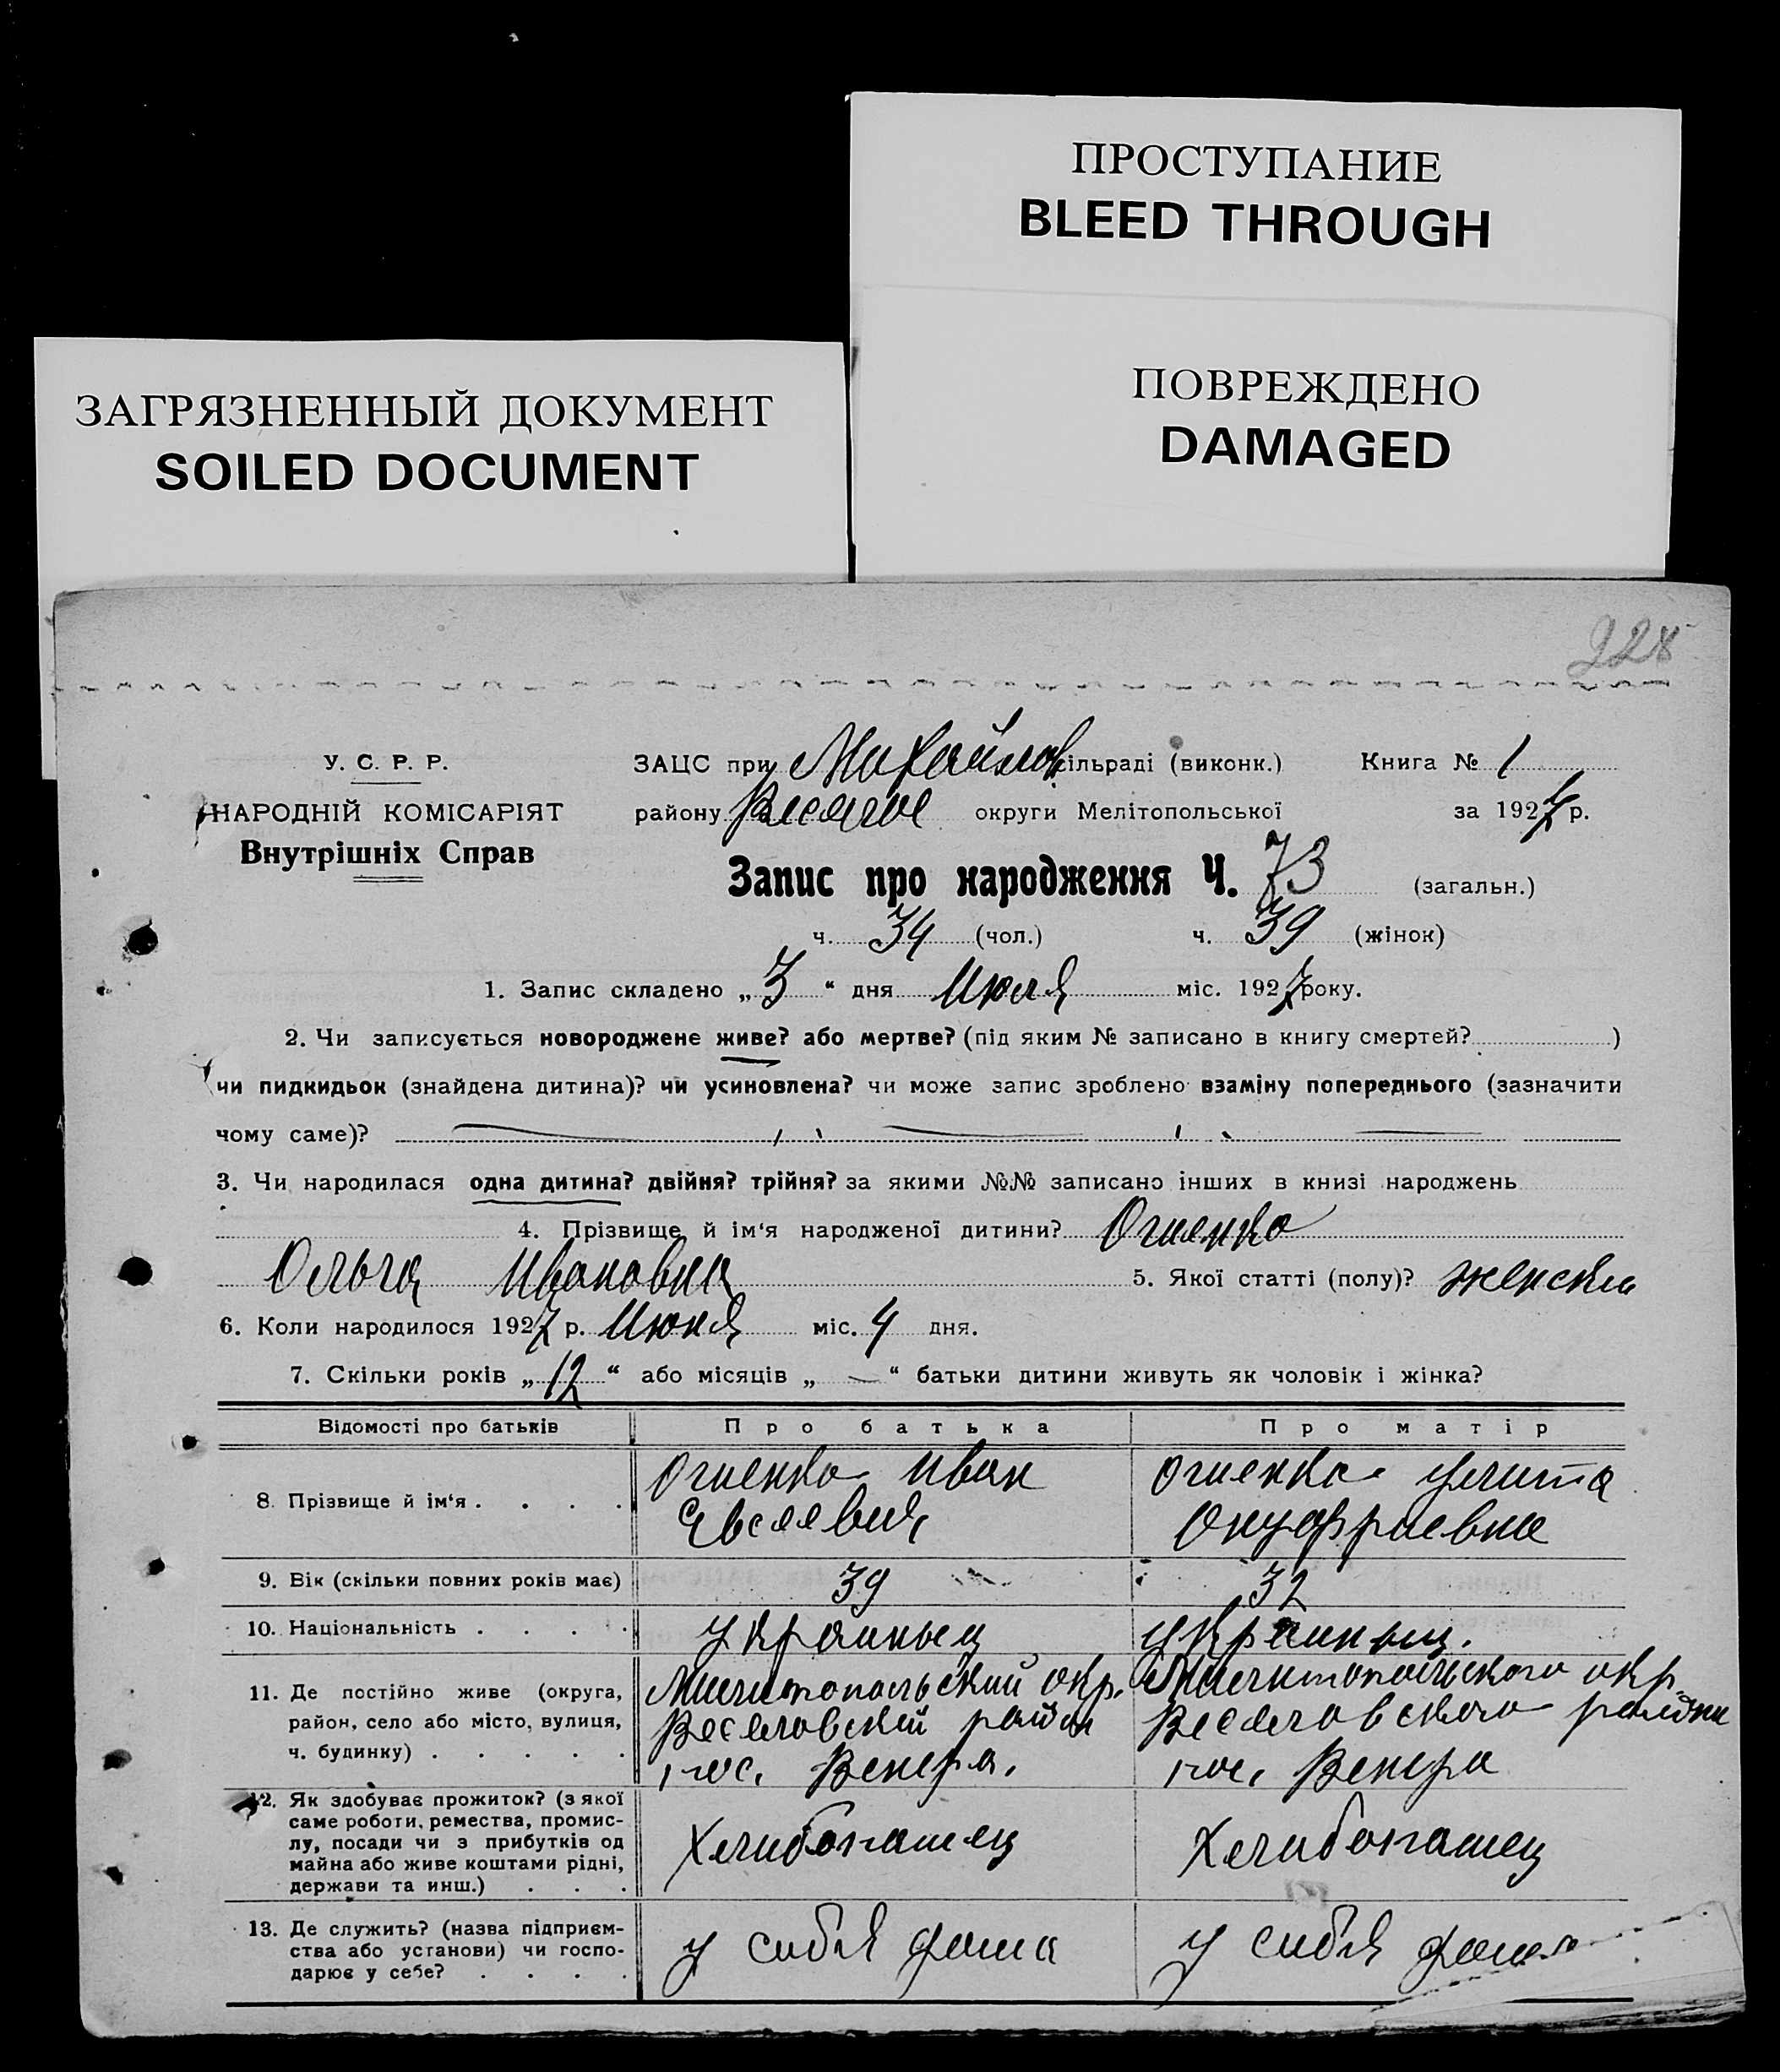 ПРОСТУПАНИЕ
BLEED THROUGH
ПОВРЕЖДЕНО
DAMAGED
ЗАГРЯЗНЕННЫЙ ДОКУМЕНТ
SOILED DOCUMENT
228
У. С. Р. Р.
НАРОДНІЙ КОМІСАРІЯТ
Внутрішніх Справ
ЗАЦС при Михайлов сільраді (виконк.) Книга № 1
району Веселое округи Мелітопольської за 1927 р.
Запис про народження Ч. 73 (загальн.)
ч. 34 (чол.) ч. 39 (жінок)
1. Запис складено „3“ дня Июля міс. 1927 року.
2. Чи записується новороджене живе? або мертве? (під яким № записано в книгу смертей? )
чи пидкидьок (знайдена дитина)? чи усиновлена? чи може запис зроблено взаміну попереднього (зазначити
чому саме)?
3. Чи народилася одна дитина? двійня? трійня? за якими №№ записано інших в книзі народжень
4. Прізвище й ім‘я народженої дитини? Огиенко
Ольга Ивановна 5. Якої статті (полу)? женски
6. Коли народилося 1927 р. Июня міс. 4 дня.
7. Скільки років „12“ або місяців „—“ батьки дитини живуть як чоловік і жінка?
Відомості про батьків Про батька Про матір
8. Прізвище й ім‘я . . . . Огиенко Иван Огиенко Улита
Евсеевич Онуфриевна
9. Вік (скільки повних років має) 39 32
10. Національність . . . . Украиньец Украиньец.
11. Де постійно живе (округа,
район, село або місто, вулиця,
ч. будинку) . . . . .
Милитопольский окр. Милитопольского окр.
Веселовский район Веселовского района
пос. Венера. пос. Венера
12. Як здобуває прожиток? (з якої
саме роботи, ремества, промис-
лу, посади чи з прибутків од
майна або живе коштами рідні,
держави та инш.) . . .
Хлибопашец Хлибопашец
13. Де служить? (назва підприєм-
ства або установи) чи госпо-
дарює у себе? . . . .
У сибя дома У сибя дома